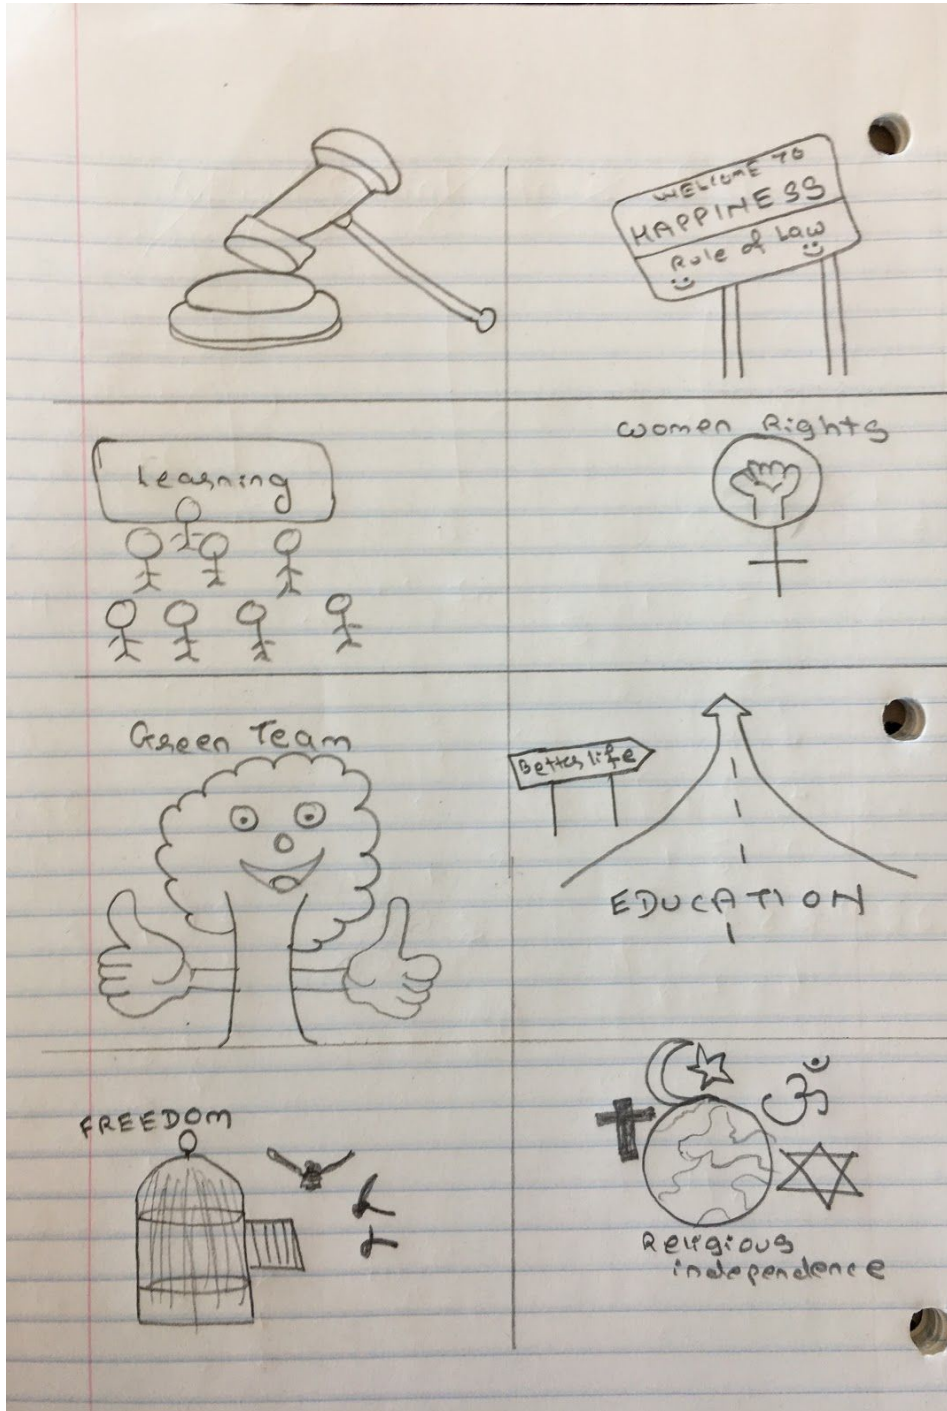 WELCOME TO
HAPPINESS
Rule of Law
Learning
Women Rights
Green Team
Better life
EDUCATION
FREEDOM
Religious
independence